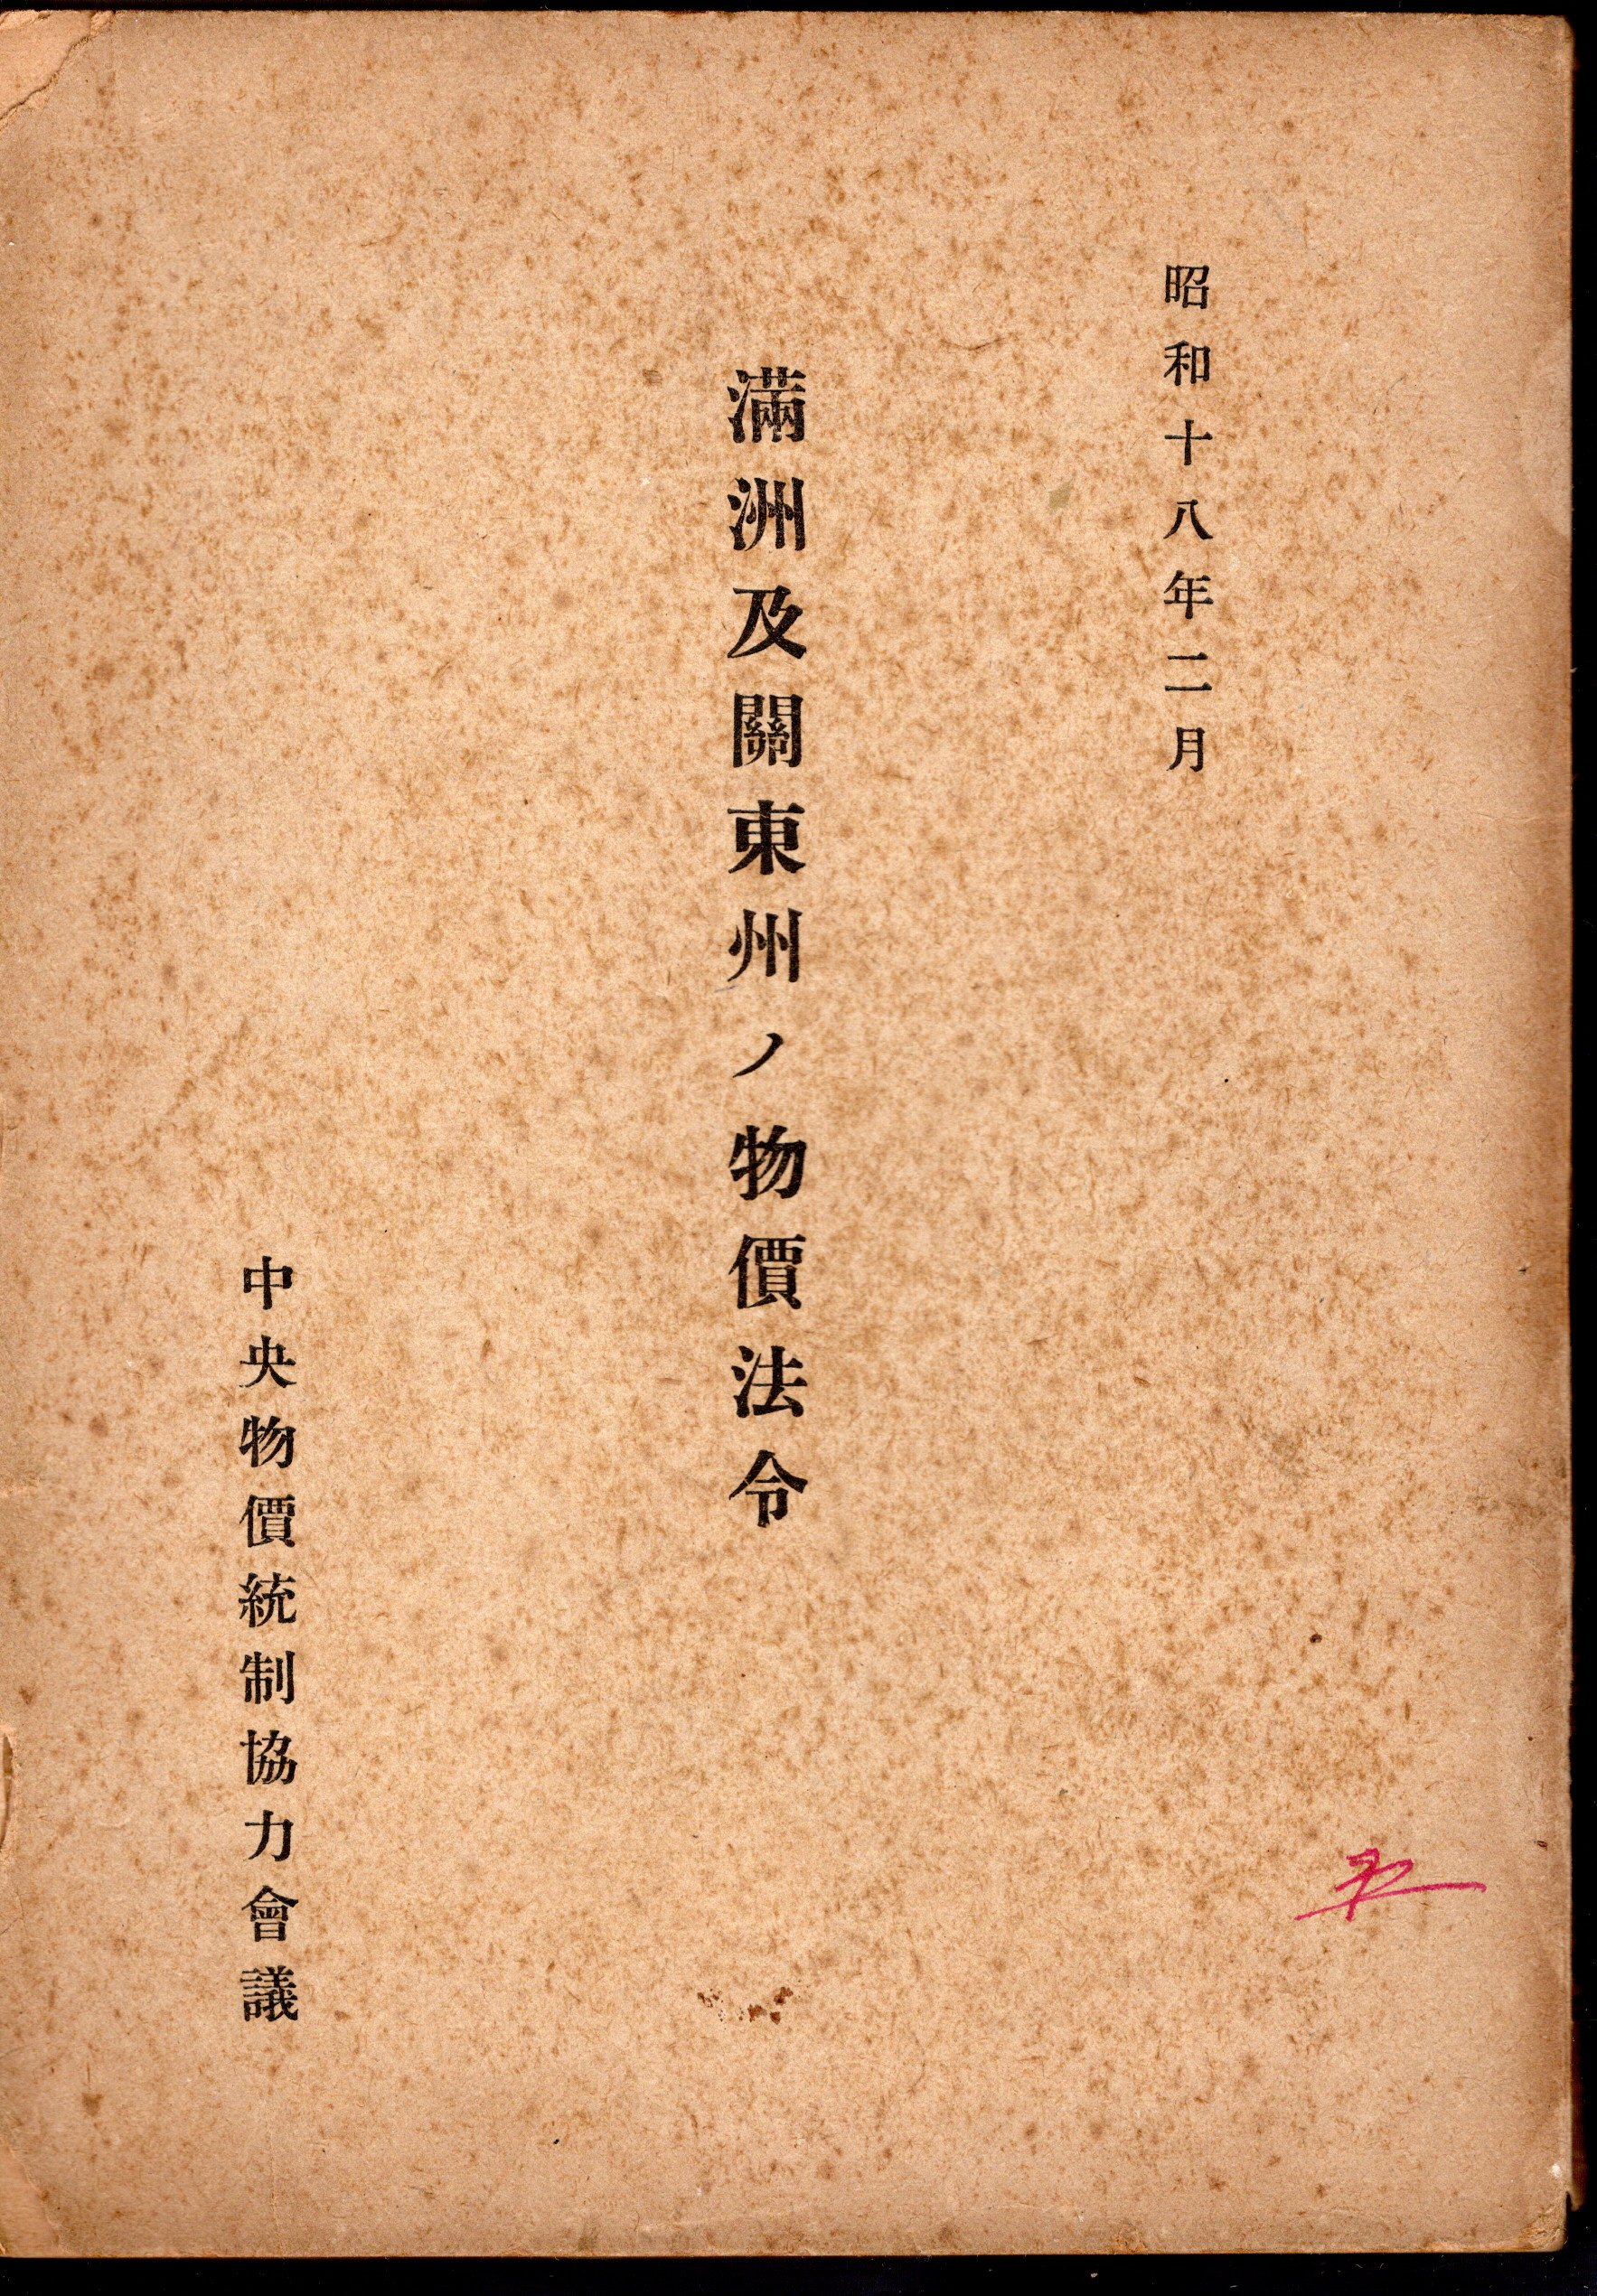 昭和十八年二月
滿洲及關東州ノ物價法令
中央物價統制協力會議